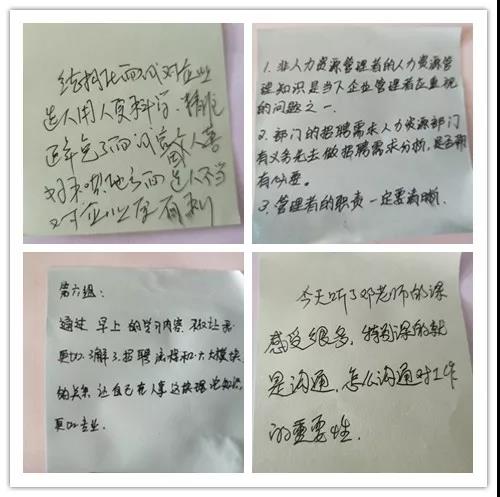 结构化面试对企业
选人用人更科学、精准
避免了面试官个人喜
好和其他方面选人不当
对企业更有利
1. 非人力资源管理者的人力资源管
理知识是当下企业管理者应重视
的问题之一.
2. 部门的招聘需求人力资源部门
有义务先去做招聘需求分析,是否都
有必要。
3. 管理者的职责一定要清晰.
第六组:
通过早上的学习内容,
更加了解了招聘流程和六大模块
的关系,让自己在人事这块理论知识
更加专业.
今天听了邓老师的课
感受很多,特别深的就
是沟通,怎么沟通对工作
的重要性.